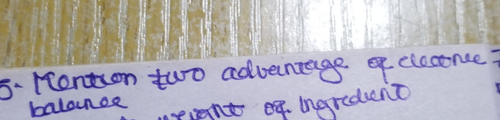 5. Mention two advantage of electronic
balance
weight of ingredient